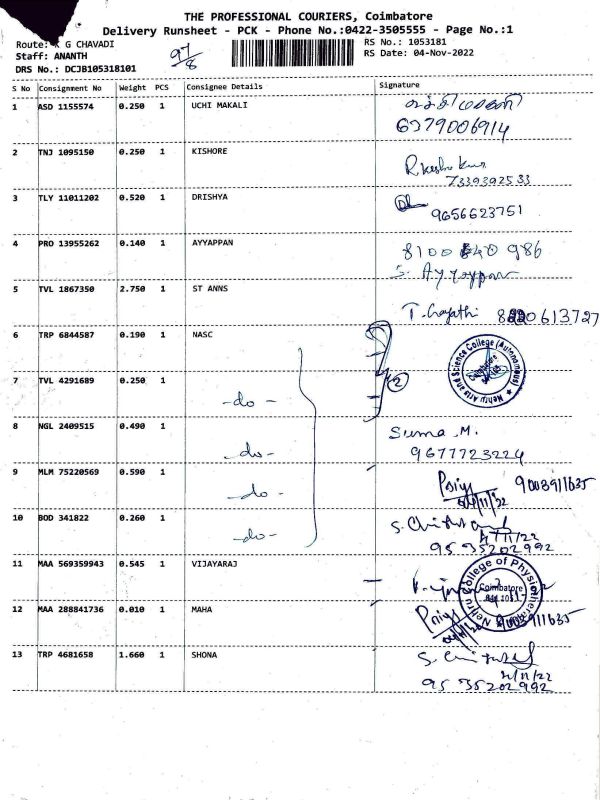 THE PROFESSIONAL COURIERS, Coimbatore
Delivery Runsheet - PCK - Phone No.:0422-3505555 - Page No.:1
Route: K G CHAVADI
RS No.: 1053181
Staff: ANANTH
97/8
RS Date: 04-Nov-2022
DRS No.: DCJB105318101
S No Consignment No Weight PCS Consignee Details Signature
1 ASD 1155574 0.250 1 UCHI MAKALI
6379006914
2 TNJ 1095150 0.250 1 KISHORE
7339392533
3 TLY 11011202 0.520 1 DRISHYA
9656623751
4 PRO 13955262 0.140 1 AYYAPPAN
8100 840 986
S. Ayyappan
5 TVL 1867350 2.750 1 ST ANNS
T. Gayathri 8220613727
6 TRP 6844587 0.190 1 NASC
Nehru Arts and Science College (Autonomous) Coimbatore
7 TVL 4291689 0.250 1 -do- 2
8 NGL 2409515 0.490 1 -do- Suma .M.
9677723224
9 MLM 75220569 0.590 1 -do- Priya 9003911635
04/11/22
10 BOD 341822 0.260 1 -do-
4/11/22
9535202992
11 MAA 569359943 0.545 1 VIJAYARAJ
Nehru College of Physiotherapy Coimbatore 641 105
12 MAA 288841736 0.010 1 MAHA Priya
04/11/22 9003911635
13 TRP 4681658 1.660 1 SHONA
4/11/22
9535202992